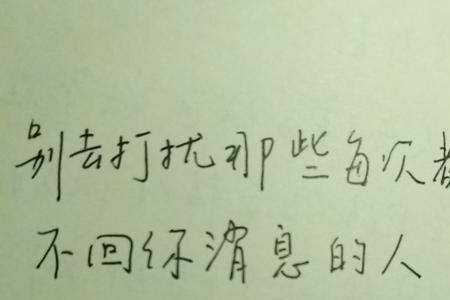 别去打扰那些每次都
不回你消息的人